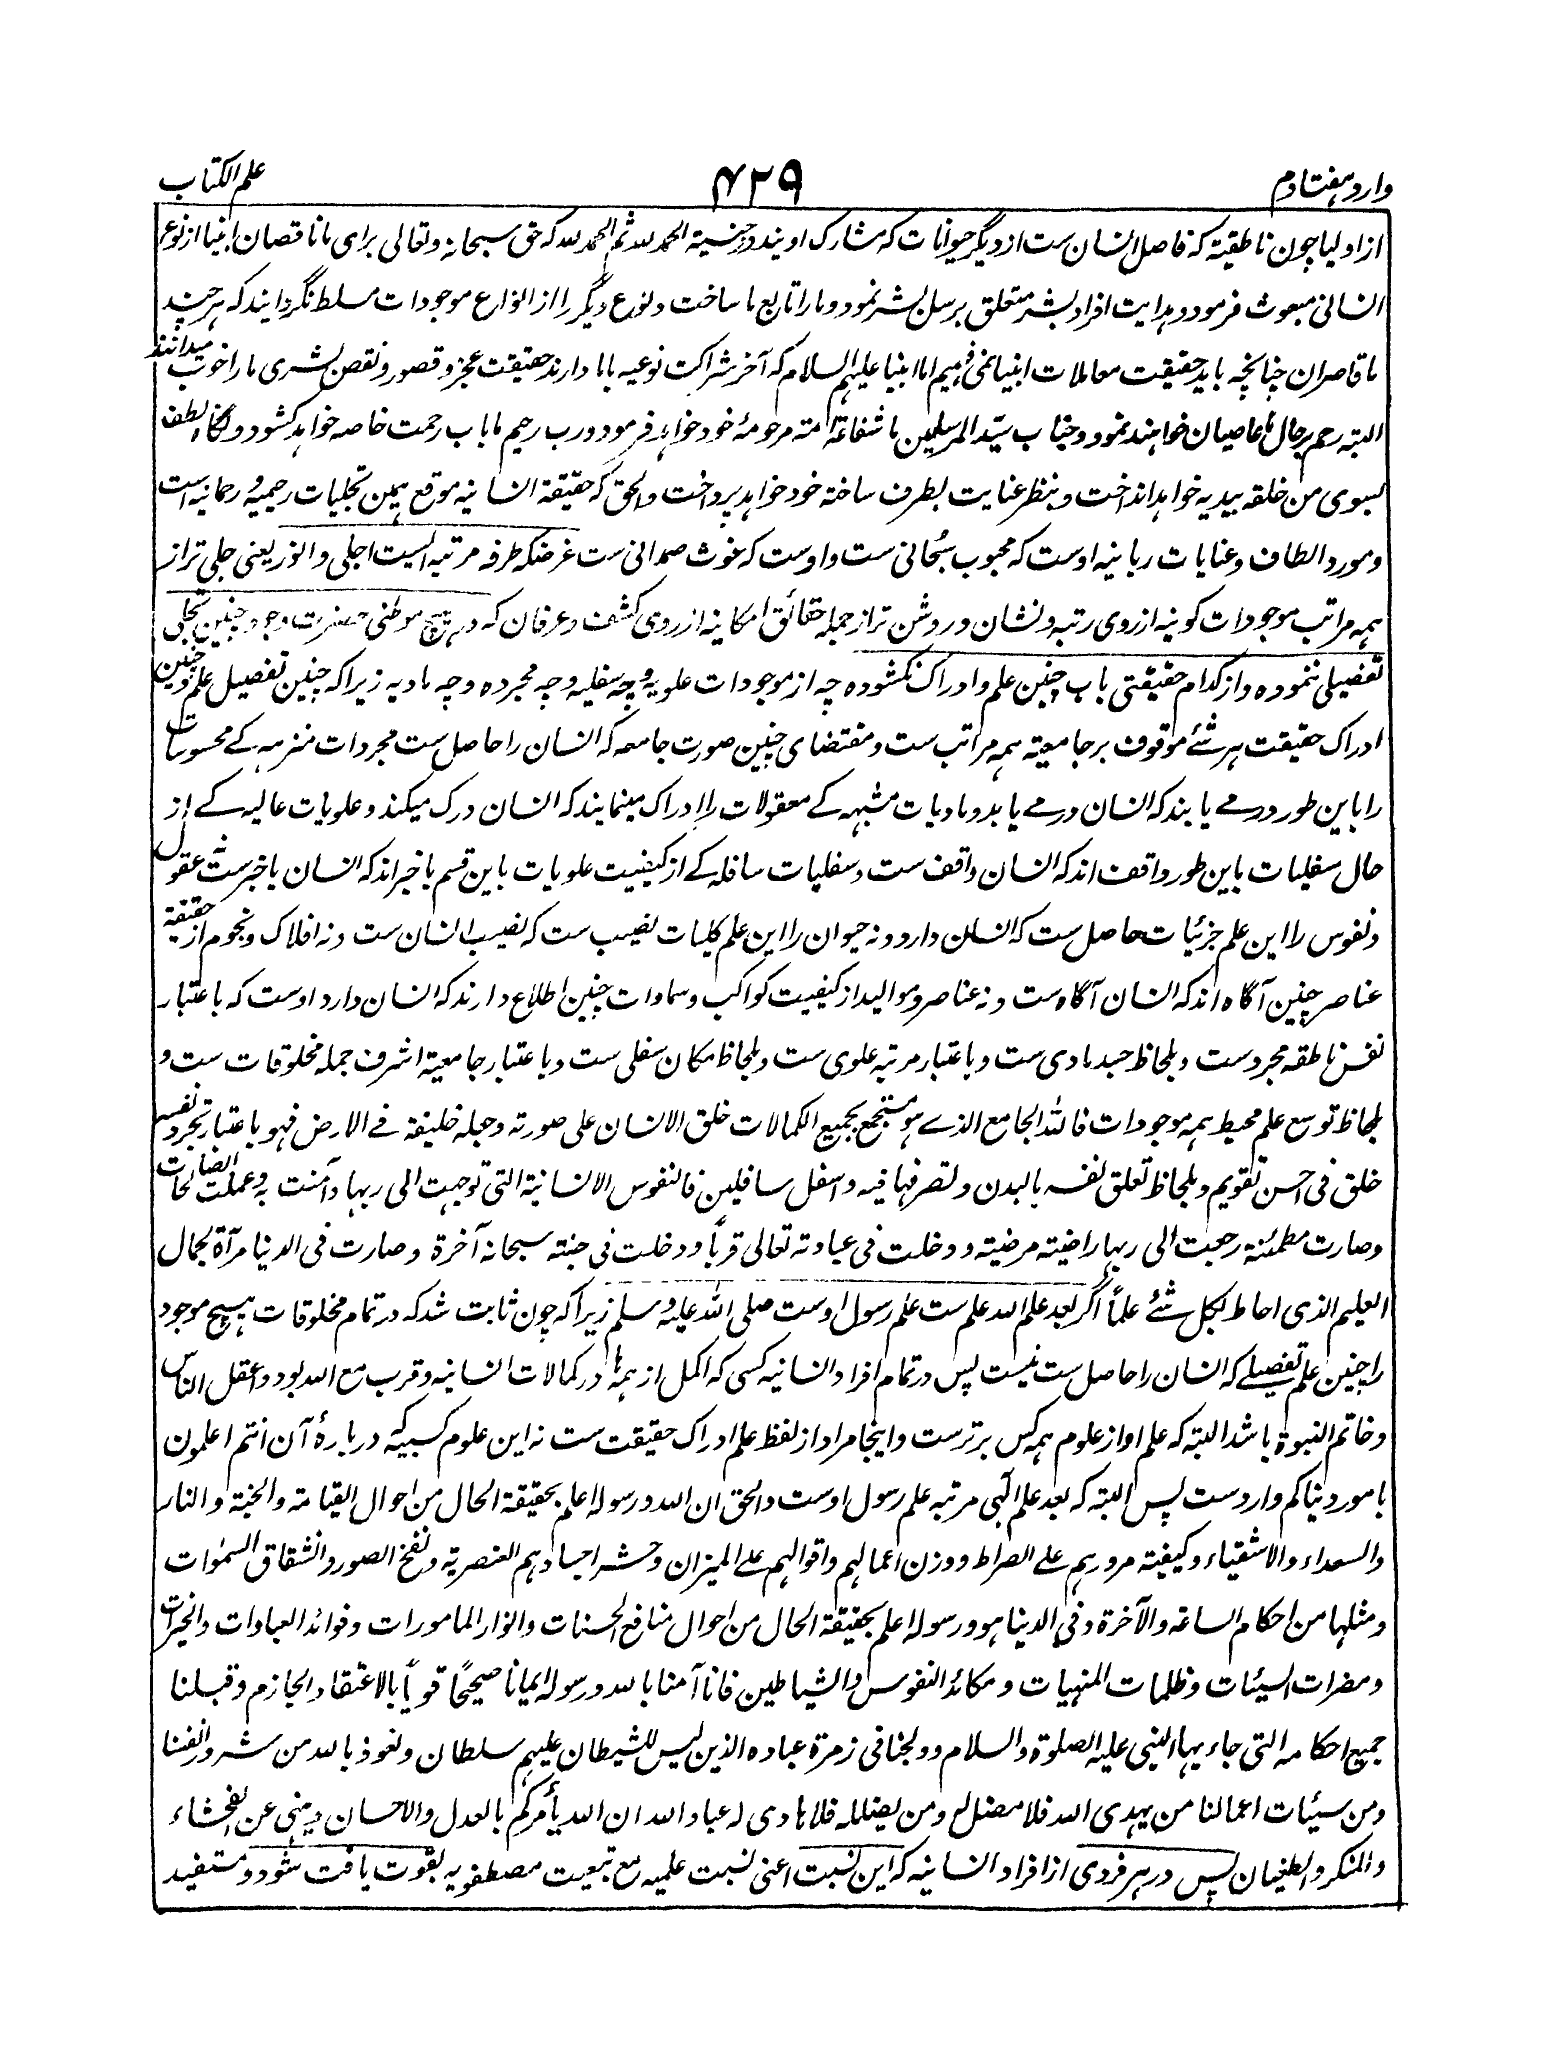 وارد ہفتادم
۴۲۹
علم الکتاب
از اولیا چون ناطقیة که فاصل انسان ست از دیگر حیوانات که مشارک اویند در جنسیة الحمد لله ثم الحمد لله که حق سبحانه وتعالی برای ما ناقصان انبیا از نوع
انسانی مبعوث فرمود و هدایت افراد بشر متعلق برسل بشر نمود و مارا تابع ما ساخت و نوع دیگر را از انواع موجودات مسلط نگردانید که هر چند
ما قاصران چنانچه باید حقیقت معاملات انبیا نمی فهمیم اما انبیا علیهم السلام که آخر شراکت نوعیه باما دارند حقیقت عجز و قصور و نقص بشری ما را خوب میدانند
البته رحم بر حال ما عاصیان خواهند نمود و جناب سیّد المرسلین ما شفاعة امته مرحومۀ خود خواهد فرمود و رب رحیم ما باب رحمت خاصه خواهد کشود و نگاه لطف
بسوی من خلقه بیدیه خواهد انداخت و بنظر عنایت بطرف ساخته خود خواهد پرداخت والحق که حقیقة انسانیه موقع همین تجلیات رحیمیه و رحمانیه است
و مورد الطاف و عنایات ربانیه اوست که محبوب سُبحانی ست و اوست که غوث صمدانی ست غرضکه طرفه مرتبه ایست اجلی و انور یعنی جلی تر از
همه مراتب موجودات کونیه از روی رتبه و نشان و روشن تر از جمله حقائق امکانیه از روی کشف و عرفان که در هیچ موطنی حضرت وجود چنین تجلی
تفصیلی ننموده و از کدام حقیقتی باب چنین علم و ادراک نکشوده چه از موجودات علویه و چه سفلیه و چه مجرده و چه مادیه زیرا که چنین تفصیل علم و چنین
ادراک حقیقت هر شئے موقوف بر جامعیة همه مراتب ست و مقتضای چنین صورت جامعه که انسان را حاصل ست مجردات منزهه کے محسوسات
را باین طور درمے یابند که انسان درمے یابد و مادیات مشبهه کے معقولات را ادراک مینمایند که انسان درک میکند و علویات عالیه کے از
حال سفلیات باین طور واقف اند که انسان واقف ست و سفلیات سافله کے از کیفیت علویات باین قسم باخبر اند که انسان باخبر ست عقول
و نفوس را این علم جزئیات حاصل ست که انسان دارد و نه حیوان را این علم کلیات نصیب ست که نصیب انسان ست و نه افلاک و نجوم از حقیقة
عناصر چنین آگاه اند که انسان آگاه ست و نه عناصر و موالید از کیفیت کواکب و سماوات چنین اطلاع دارند که انسان دارد اوست که باعتبار
نفس ناطقه مجرد ست و بلحاظ جسد مادی ست و باعتبار مرتبه علوی ست و بلحاظ مکان سفلی ست و باعتبار جامعیة اشرف جمله مخلوقات ست و
بلحاظ توسع علم محیط همه موجودات فالله الجامع الذے هو مستجمع بجمیع الکمالات خلق الانسان علی صورته وجعله خلیفة فے الارض فهو باعتبار تجرد نفسه
خلق فی احسن تقویم و بلحاظ تعلق نفسه بالبدن و تصرفها فیه و اسفل سافلین فالنفوس الانسانیة التی توجهت الی ربها و آمنت به وعملت الصالحات
وصارت مطمئنة رجعت الی ربها راضیته مرضیته و دخلت فی عبادته تعالی قرباً و دخلت فی جنته سبحانه آخرة وصارت فی الدنیا مرآة لجمال
العلیم الذی احاط بکل شئے علماً اگر بعد علم الله علم ست علم رسول اوست صلی الله علیه وسلم زیرا که چون ثابت شد که در تمام مخلوقات هیچ موجود
را چنین علم تفصیلے که انسان را حاصل ست نیست پس در تمام افراد انسانیه کسی که اکمل از همه ها در کمالات انسانیه و قرب مع الله بود و اعقل الناس
و خاتم النبوة باشد البته که علم او از علوم همه کس برتر ست و اینجا مراد از لفظ علم ادراک حقیقت ست نه این علوم کسبیه که دربارۀ آن انتم اعلمون
بامور دنیاکم وارد ست پس البته که بعد علم الٰهی مرتبه علم رسول اوست والحق ان الله ورسوله اعلم بحقیقة الحال من احوال القیامة والجنة والنار
والسعداء والاشقیاء وکیفیته مرورهم علے الصراط ووزن اعمالهم واقوالهم علے المیزان وحشر اجسادهم العنصریة ونفخ الصور وانشقاق السمٰوات
ومثلها من احکام الساعة والآخرة وفی الدنیا هو ورسوله اعلم بحقیقة الحال من احوال منافع الحسنات وانوار المامورات وفوائد العبادات والخیرات
ومضرات السیئات وظلمات المنهیات ومکائد النفوس والشیاطین فانا آمنا بالله ورسوله ایمانا صحیحًا قویاً بالاعتقاد الجازم وقبلنا
جمیع احکامه التی جاء بها النبی علیه الصلوة والسلام وولجنا فی زمرة عباده الذین لیس للشیطان علیهم سلطان ونعوذ بالله من شرور انفسنا
ومن سیئات اعمالنا من یهدی الله فلا مضل له ومن یضلله فلا هادی له عباد الله ان الله یأمرکم بالعدل والاحسان وینهی عن الفحشاء
والمنکر والطغیان پس در هر فردی از افراد انسانیه که این نسبت اعنی نسبت علمیه مع تبعیت مصطفویه بقوت یافت شود و مستفید